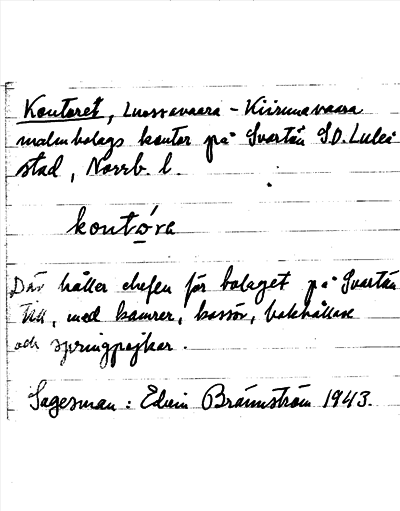 Kontoret, Luossavaara - Kiirunavaara
malmbolags kontor på Svartön S.O. Luleå
stad, Norrb. l.
kontóra
Där håller chefen för bolaget på Svartön
till, med kamrer, kassör, bokhållare
och springpojkar.
Sagesman: Edvin Brännström 1943.